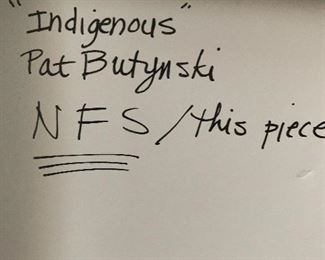 "Indigenous"
Pat Butynski
NFS/this piece